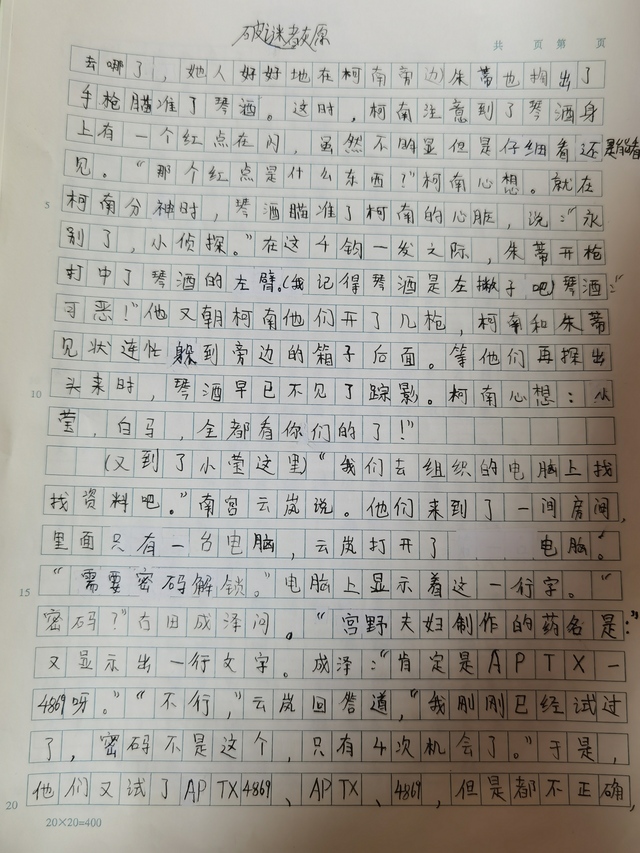 破谜者
共 页 第 页
去哪了，她人好好地在柯南旁边朱蒂也掏出了
手枪瞄准了琴酒。这时，柯南注意到了琴酒身
上有一个红点在闪，虽然不明显但是仔细看还是能看
见。“那个红点是什么东西？”柯南心想。就在
5 柯南分神时，琴酒瞄准了柯南的心脏，说：“永
别了，小侦探。”在这千钧一发之际，朱蒂开枪
打中了琴酒的左臂。(我记得琴酒是左撇子吧)琴酒：“
可恶！”他又朝柯南他们开了几枪，柯南和朱蒂
见状连忙躲到旁边的箱子后面。等他们再探出
10 头来时，琴酒早已不见了踪影。柯南心想：小
莹，白马，全都看你们的了！”
(又到了小莹这里)“我们去组织的电脑上找
找资料吧。”南宫云岚说。他们来到了一间房间，
里面只有一台电脑，云岚打开了 电脑。
15 “需要密码解锁。”电脑上显示着这一行字。“
密码？”古田成泽问。“宫野夫妇制作的药名是：”
又显示出一行文字。成泽：“肯定是APTX-
4869呀。”“不行，”云岚回答道，“我刚刚已经试过
了，密码不是这个，只有4次机会了。”于是，
20 他们又试了APTX4869、APTX、4869，但是都不正确，
20×20=400